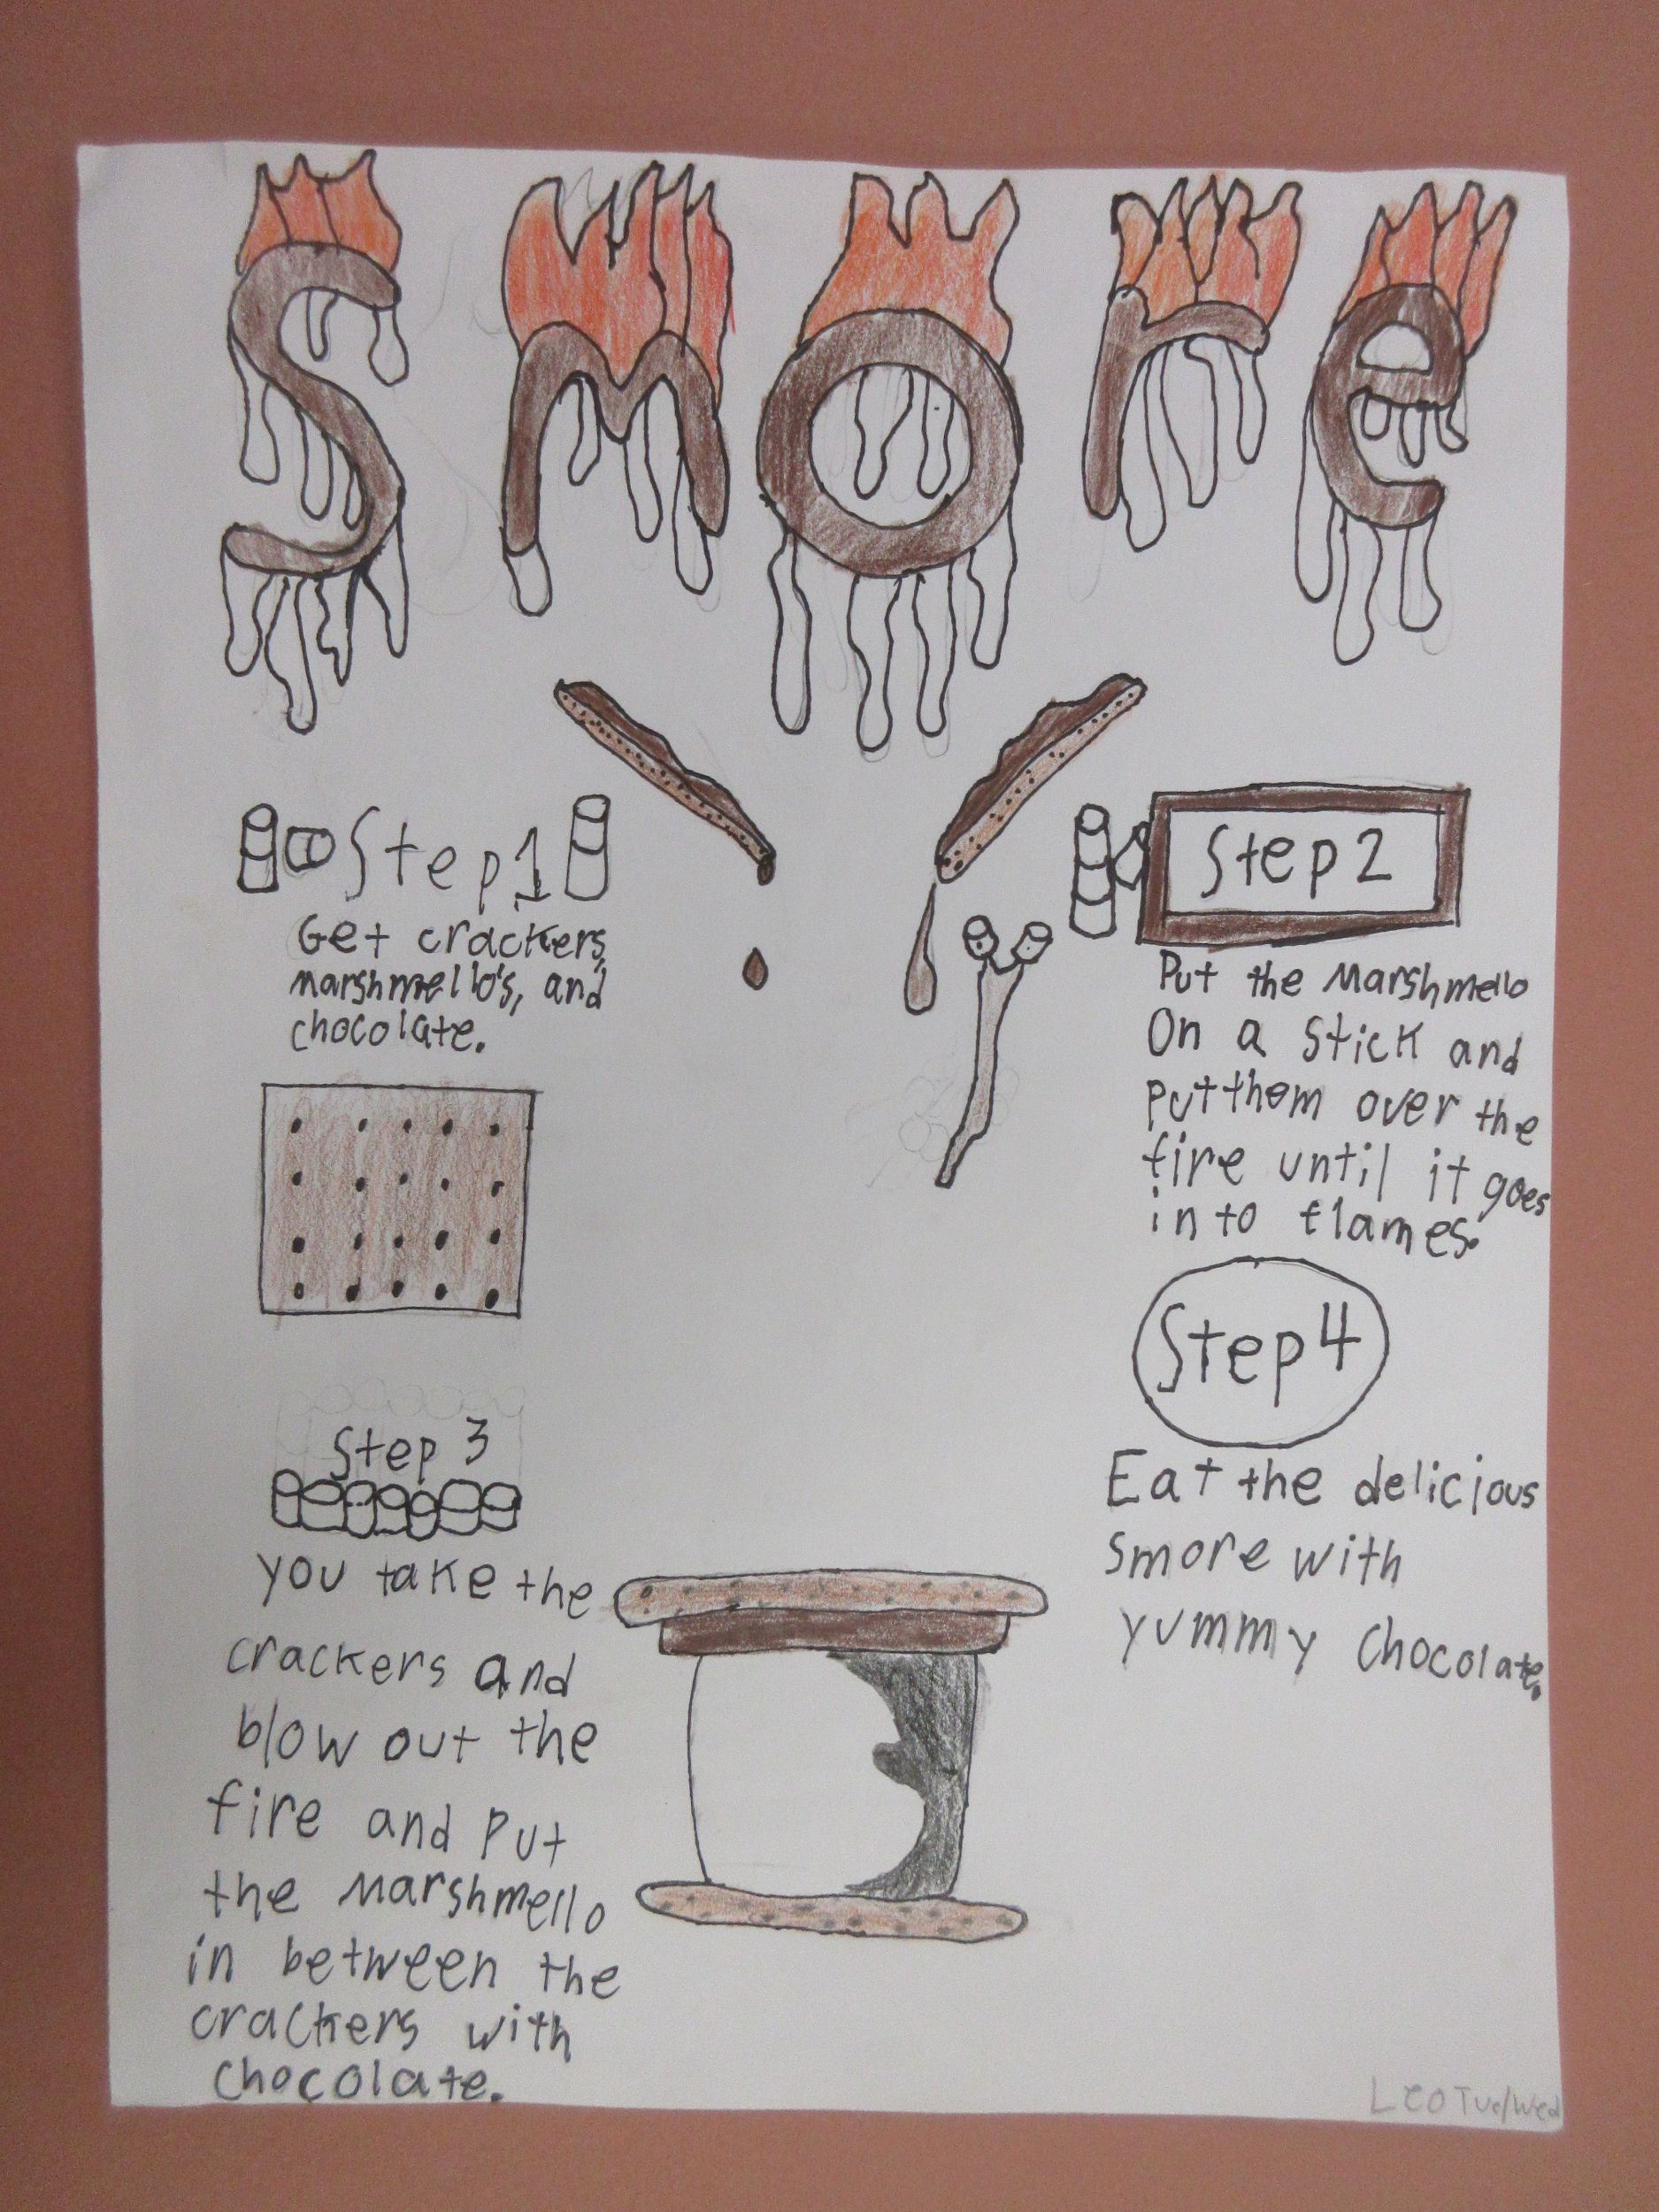 Smore
Step 1
Get crackers,
marshmello's, and
chocolate.
Step 2
Put the Marshmello
On a Stick and
put them over the
fire until it goes
in to flames.
Step 3
you take the
crackers and
blow out the
fire and put
the Marshmello
in between the
crackers with
chocolate.
Step 4
Eat the delicious
smore with
yummy chocolate.
Leo Tue/Wed